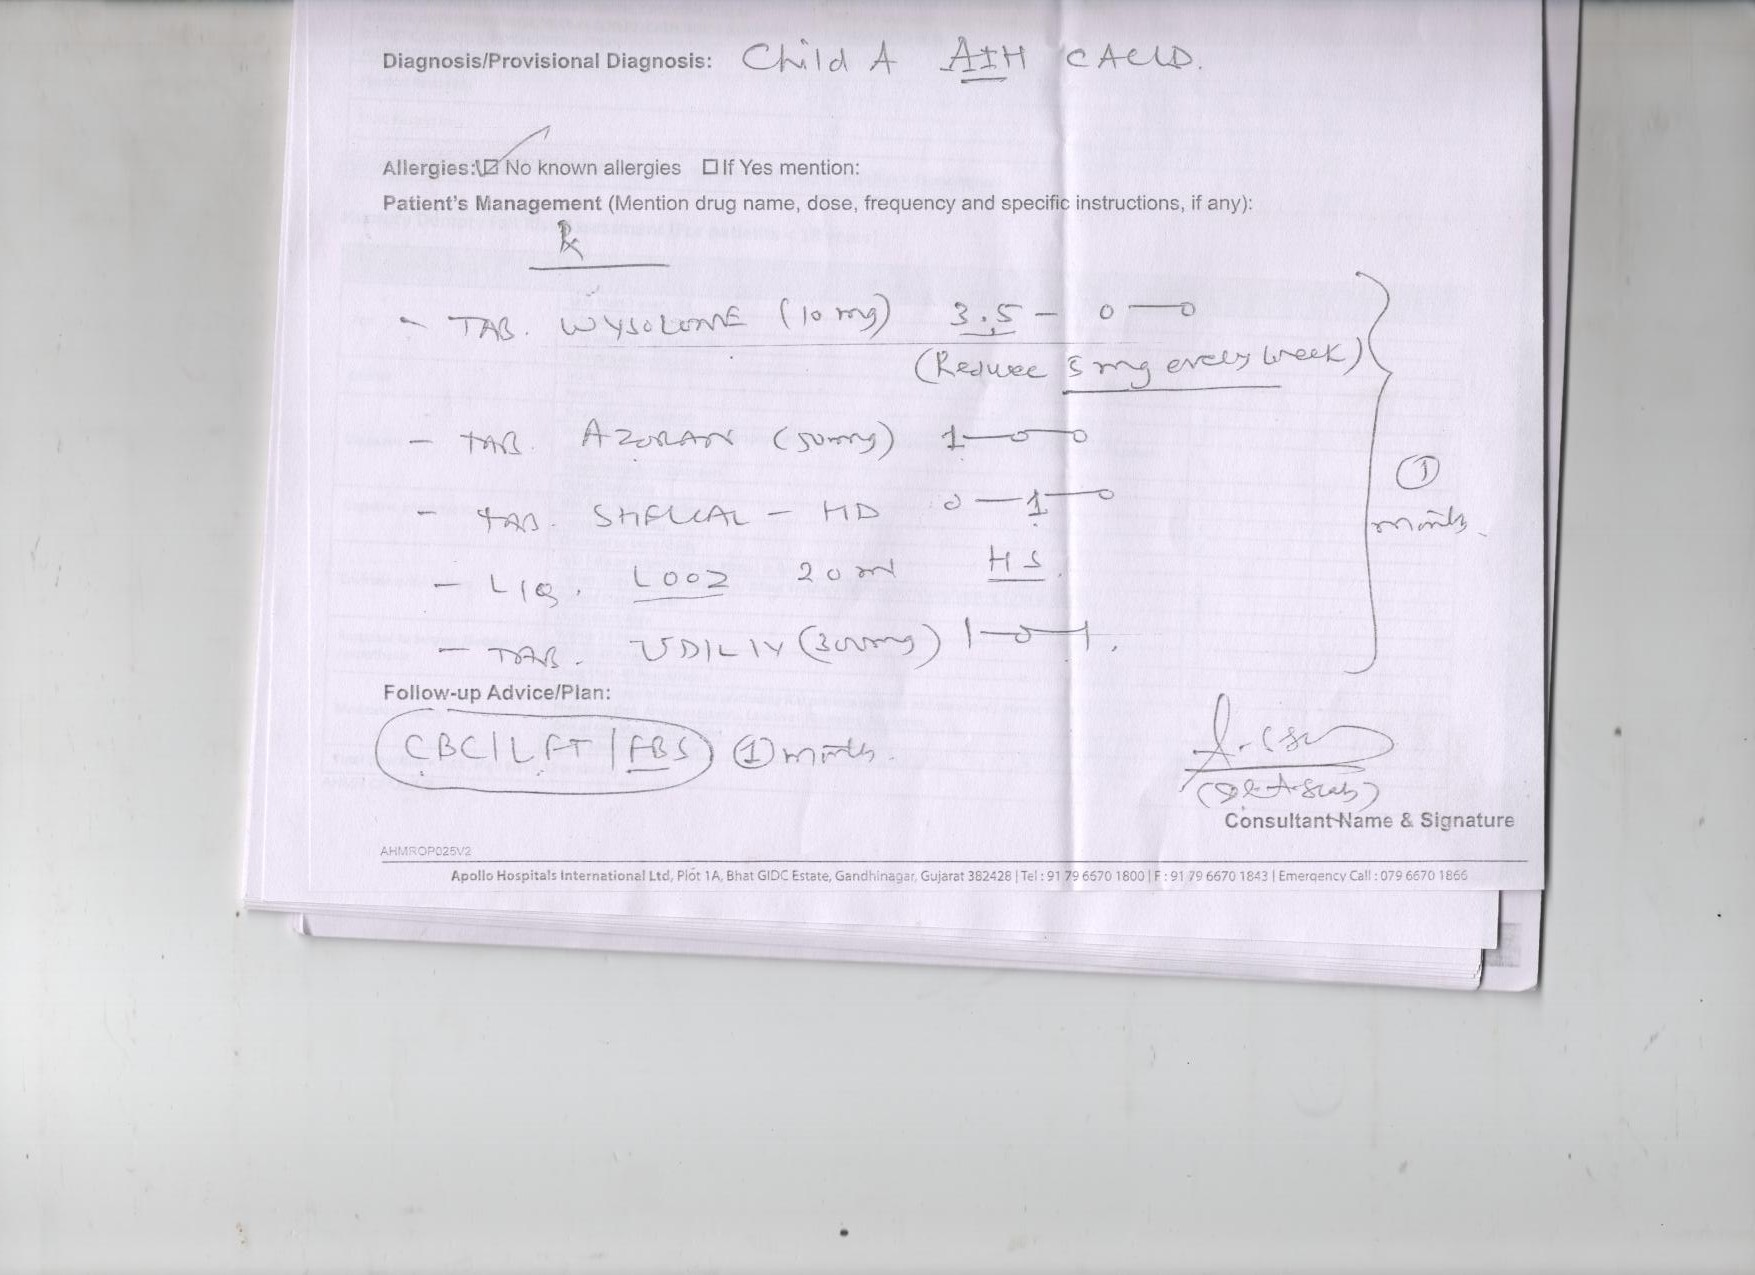 Diagnosis/Provisional Diagnosis: Child A AIH CACLD.
Allergies: ☑ No known allergies ☐ If Yes mention:
Patient's Management (Mention drug name, dose, frequency and specific instructions, if any):
Rx
- TAB. WYSOLONE (10 mg) 3.5 - 0 - 0
(Reduce 5 mg every week)
- TAB. AZORAN (50mg) 1 - 0 - 0
- TAB. SHELCAL - HD 0 - 1 - 0
① month
- LIQ. LOOZ 20 ml HS.
- TAB. UDILIV (300mg) 1 - 0 - 1.
Follow-up Advice/Plan:
CBC | LFT | FBS ① month.
Consultant Name & Signature
AHMROP025V2
Apollo Hospitals International Ltd, Plot 1A, Bhat GIDC Estate, Gandhinagar, Gujarat 382428 | Tel : 91 79 6670 1800 | F : 91 79 6670 1843 | Emergency Call : 079 6670 1866